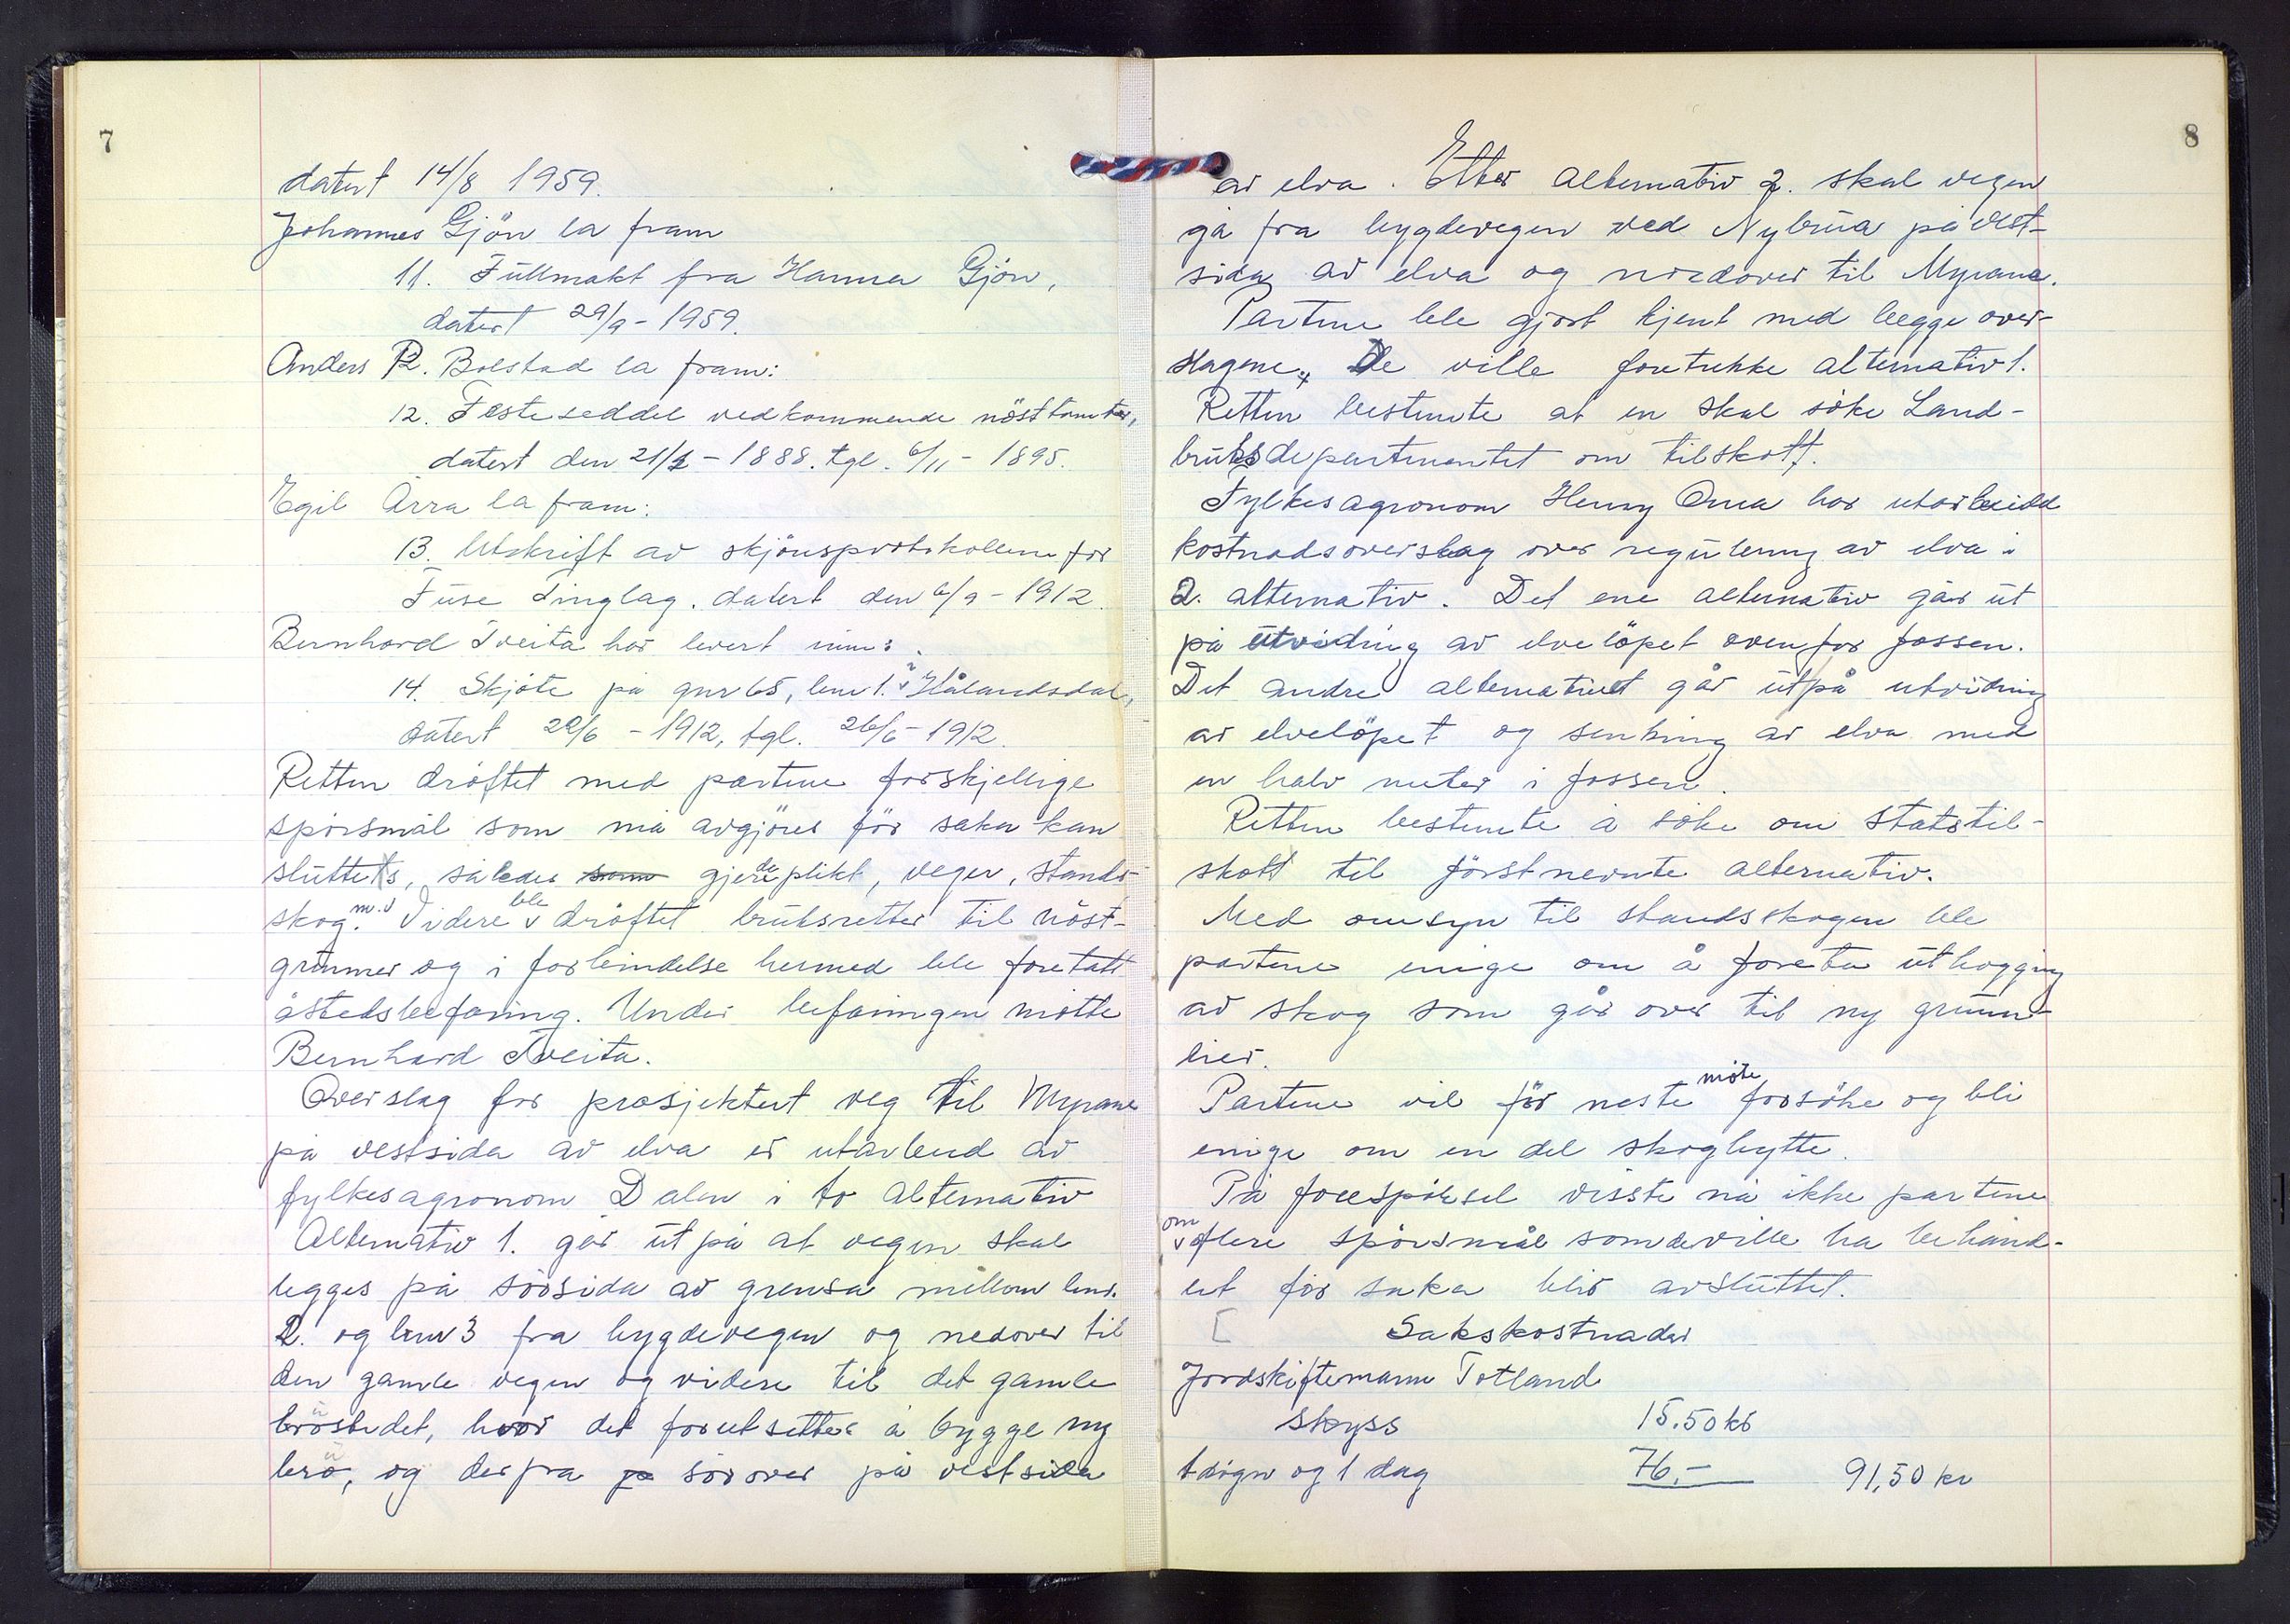 7
datert 14/8 1959.
Johannes Gjön la fram
11. Fullmakt fra Hanna Gjön,
datert 29/9 - 1959.
Anders R. Bolstad la fram:
12. Festeseddel vedkommende nösttomter,
datert den 21/2 - 1888. tgl. 6/11 - 1895.
Egil Arra la fram:
13. Utskrift av skjönsprotokollen for
Fuse Tinglag. datert den 6/9 - 1912.
Bernhard Tveita har levert inn:
14. Skjöte på gnr 65, bnr 1. i Hålandsdal,
datert 22/6 - 1912, tgl. 26/6 - 1912.
Retten dröftet med partene forskjellige
spörsmål som må avgjöres för saka kan
sluttes, således som gjerdeplikt, veger, stands-
skog m.v. Videre ble dröftet bruksretter til nöst-
grunner og i forbindelse hermed ble foretatt
åstedsbefaring. Under befaringen mötte
Bernhard Tveita.
Overslag for prosjektert veg til Myrane
på vestsida av elva er utarbeid av
fylkesagronom Dalen i to alternativ
Alternativ 1. går ut på at vegen skal
legges på sörsida av grensa mellom bnr.
2. og bnr 3 fra bygdevegen og nedover til
den gamle vegen og videre til det gamle
brustedet, hvor det forutsettes å bygge ny
bru, og derfra på sörover på vestsida
8
av elva. Etter alternativ 2. skal vegen
gå fra bygdevegen ved Nybrua på vest-
sida av elva og nordover til Myrane.
Partene ble gjort kjent med begge over-
slagene. De ville foretrekke alternativ 1.
Retten bestemte at en skal söke Land-
bruksdepartmentet om tilskott.
Fylkesagronom Henry Oma har utarbeidd
kostnadsoverslag over regulering av elva i
2. alternativ. Det ene alternativ går ut
på utviding av elvelöpet ovenfor fossen.
Det andre alternativet går ut på utviding
av elvelöpet og senking av elva med
en halv meter i fossen.
Retten bestemte å söke om statstil-
skott til förstnevnte alternativ.
Med omsyn til standsskogen ble
partene enige om å foreta uthogging
av skog som går over til ny grunn-
eier.
Partene vil för neste möte forsöke og bli
enige om en del skogbytte.
På forespörsel visste nå ikke partene
om flere spörsmål som de ville ha behand-
let för saka blir avsluttet.
[ Sakskostnader
Jordskiftemann Totland
skyss 15.50 kr
1 dögn og 1 dag 76.- 91,50 kr